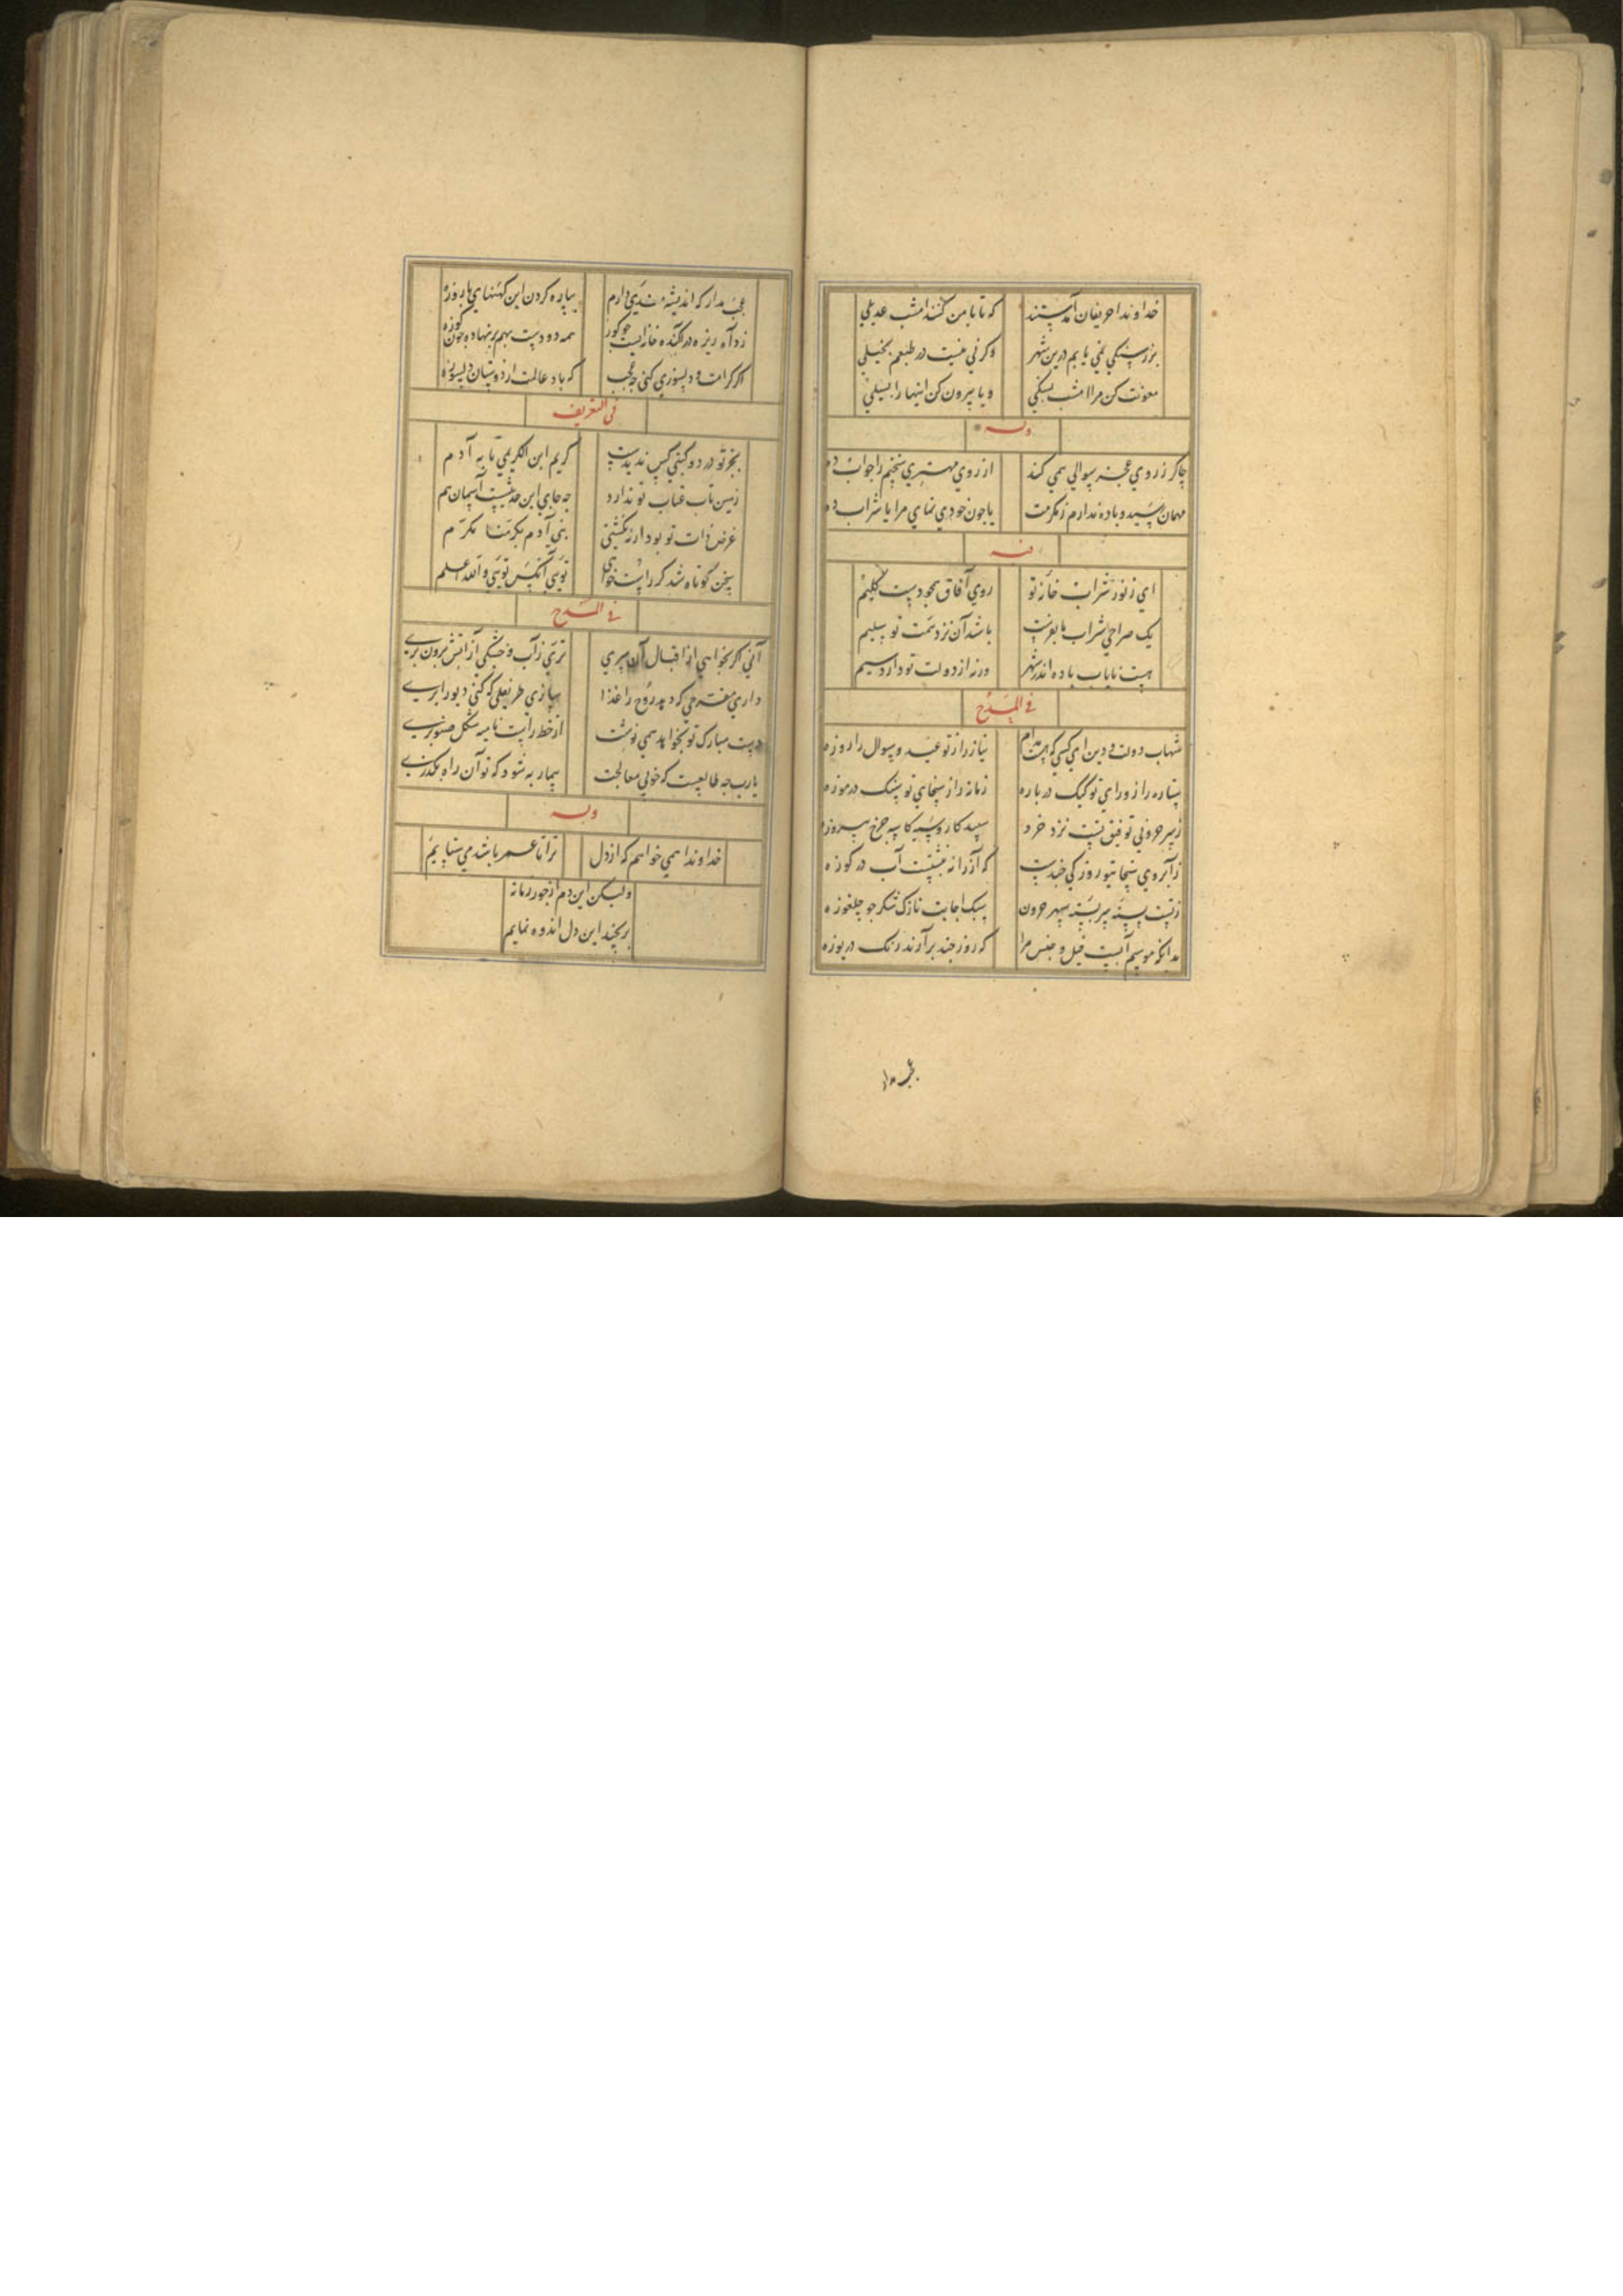 خداوندا حریفان آمدستند
که تا با من کنند امشب عدیلی
بزرسنکی نمی یابم درین شهر
وکرنی نیست در طبعم بخیلی
معونت کن مرا امشب بسنکی
و یا بیرون کن اینها را بسیلی
وله
چاکر ز روی عجز سوالی همی کند
از روی مهتری سخنم را جواب ده
مهمان رسید و باده ندارم ز مکرمت
یا چون خودی نمای مرا یا شراب ده
منه
ای ز نور شراب خانه تو
روی آفاق بجو دست کلیم
یک صراحی شراب ما بفرست
باشد آن نزد همت تو سلیم
هست نایاب باده اندر شهر
ورنه از دولت تو دارد سیم
فی المدح
شهاب دولت و دین ای کسی که هست مدام
نیاز را ز تو عید و سوال را روزه
ستاره را ز ورای تو کیک در باره
زمانه را ز سخای تو سنک در موزه
سپید کار و سیه کاسه چرخ پیروزه
ز آبروی سخا
که آز را نه نشستست آب در کوزه
سبک اجابت نازک شکر جو چلغوزه
که روز چند برآرند رنک دریوزه
عجب مدار که اندیشه مندیی دارم
بپاره کردن این کهنهای پاروزه
همه دو دست بهم برنهاده چون کوزه
اکر کرامت و دلسوزی کنی چه عجب
که باد عالمت از دوستان دلسوزه
فی التعریف
بجز تو در دو کیتی کس ندیدست
کریم ابن الکریمی تا به آدم
زمین تاب عتاب تو ندارد
چه جای این حدیثست آسمان هم
غرض ذات تو بود ار نه نکشتی
بنی آدم بکرمنا مکرم
سخن کوتاه شد کر راست خواهی
تویی آنکس تویی والله اعلم
فی المدح
آنی اکر بخواهی از اقبال آن سری
تری ز آب و خشکی از آتش برون بری
داری مفرحی که دهد روح را غذا
دست مبارک تو نخواهد همی نوشت
یارب چه طالعیست که خوبی معالجت
بیمار به شود که تو آن راه بکذری
وله
خداوندا همی خواهم که از دل
ترا تا عمر باشد می ستایم
ولیکن این دم از جور زمانه
برنجید این دل اندوه نمایم